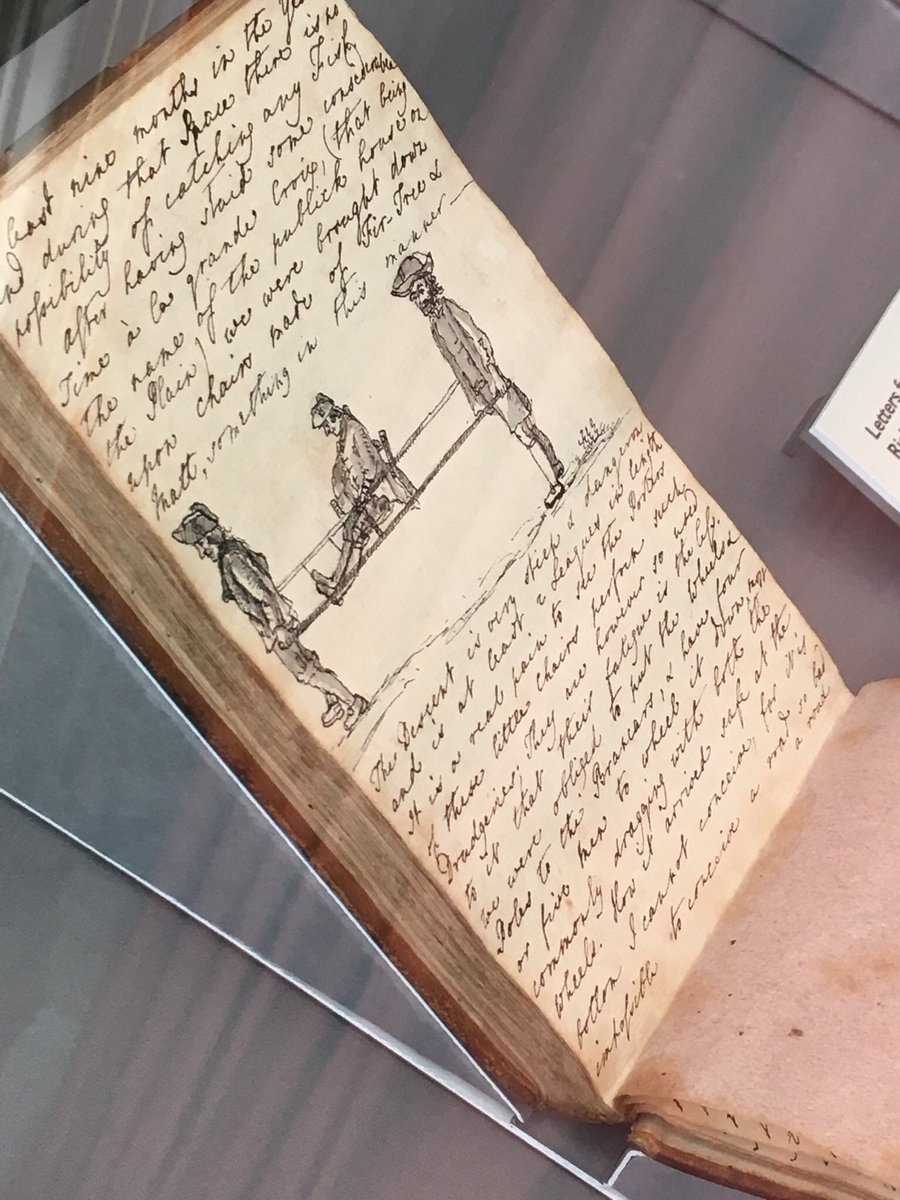 least nine months in the Year
and during that Space there is no
possibility of catching any Fish
after having staid some considerable
Time à la grande Croix, (that being
the name of the publick house on
the Plain) we were brought down
upon chairs made of Fir-Tree &
Matt, something in this manner—
The Descent is very steep & dangerous
and is at least 2 Leagues in length
It is a real pain to see the Porters
of these little chairs perform such
Drudgeries, They are however so used
to it that their fatigue is the less.
we were obliged to put the wheels and
Poles to the Brancars, & have four
or five men to wheel it down, most
commonly dragging with both the
wheels. How it arrived safe at the
bottom I cannot conceive, for it is
impossible to conceive a road so bad
a road
Letters